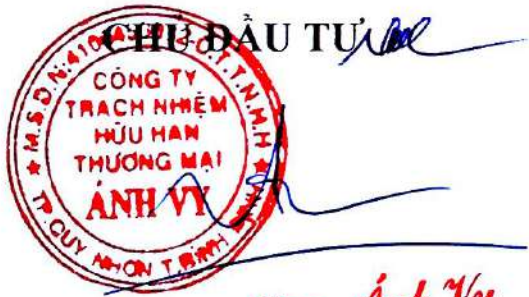 CHỦ ĐẦU TƯ
CÔNG TY
TRÁCH NHIỆM
HỮU HẠN
THƯƠNG MẠI
ÁNH VY
TP QUY NHƠN T.BÌNH
Ánh Vy